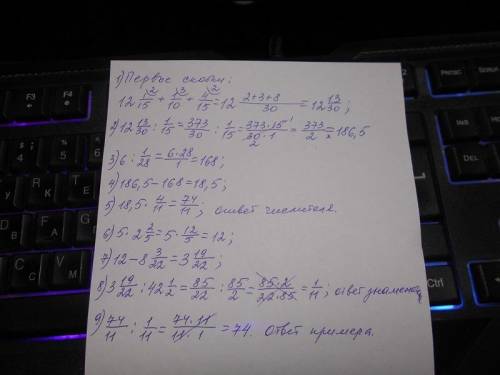 1) Первые скобки:
12 1/15 + 1/10 + 4/15 = 12 (2+3+8)/30 = 12 13/30;
2) 12 13/30 : 1/15 = 373/30 : 1/15 = (373·15)/(30·1) = 373/2 = 186,5
3) 6 : 1/28 = (6·28)/1 = 168;
4) 186,5 – 168 = 18,5;
5) 18,5 · 4/11 = 74/11; ответ числителя.
6) 5 · 2 2/5 = 5 · 12/5 = 12;
7) 12 – 8 3/22 = 3 19/22;
8) 3 19/22 : 42 1/2 = 85/22 : 85/2 = (85·2)/(22·85) = 1/11; ответ знаменат
9) 74/11 : 1/11 = (74·11)/(11·1) = 74. ответ примера.
F3
F4